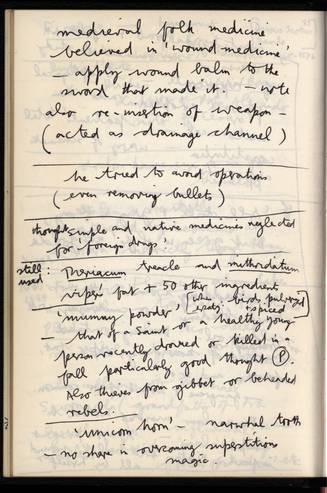 medieval folk medicine
believed in 'wound medicine'
— apply wound balm to the
sword that made it. — note
also re-insertion of weapon —
(acted as drainage channel)
he tried to avoid operations
(even removing bullets)
thought simple and native medicines neglected
for 'foreign drugs'
still used: Theriacum treacle and mithridatum
vipers' fat + 50 other ingredients
'mummy powder' [birds, pulverized + spiced]
— that of a Saint or a healthy young
person recently drowned or killed in a
fall particularly good thought P.
Also thieves from gibbet or beheaded
rebels.
'Unicorn horn' — narwhal tooth
— no share in overcoming superstition
magic.